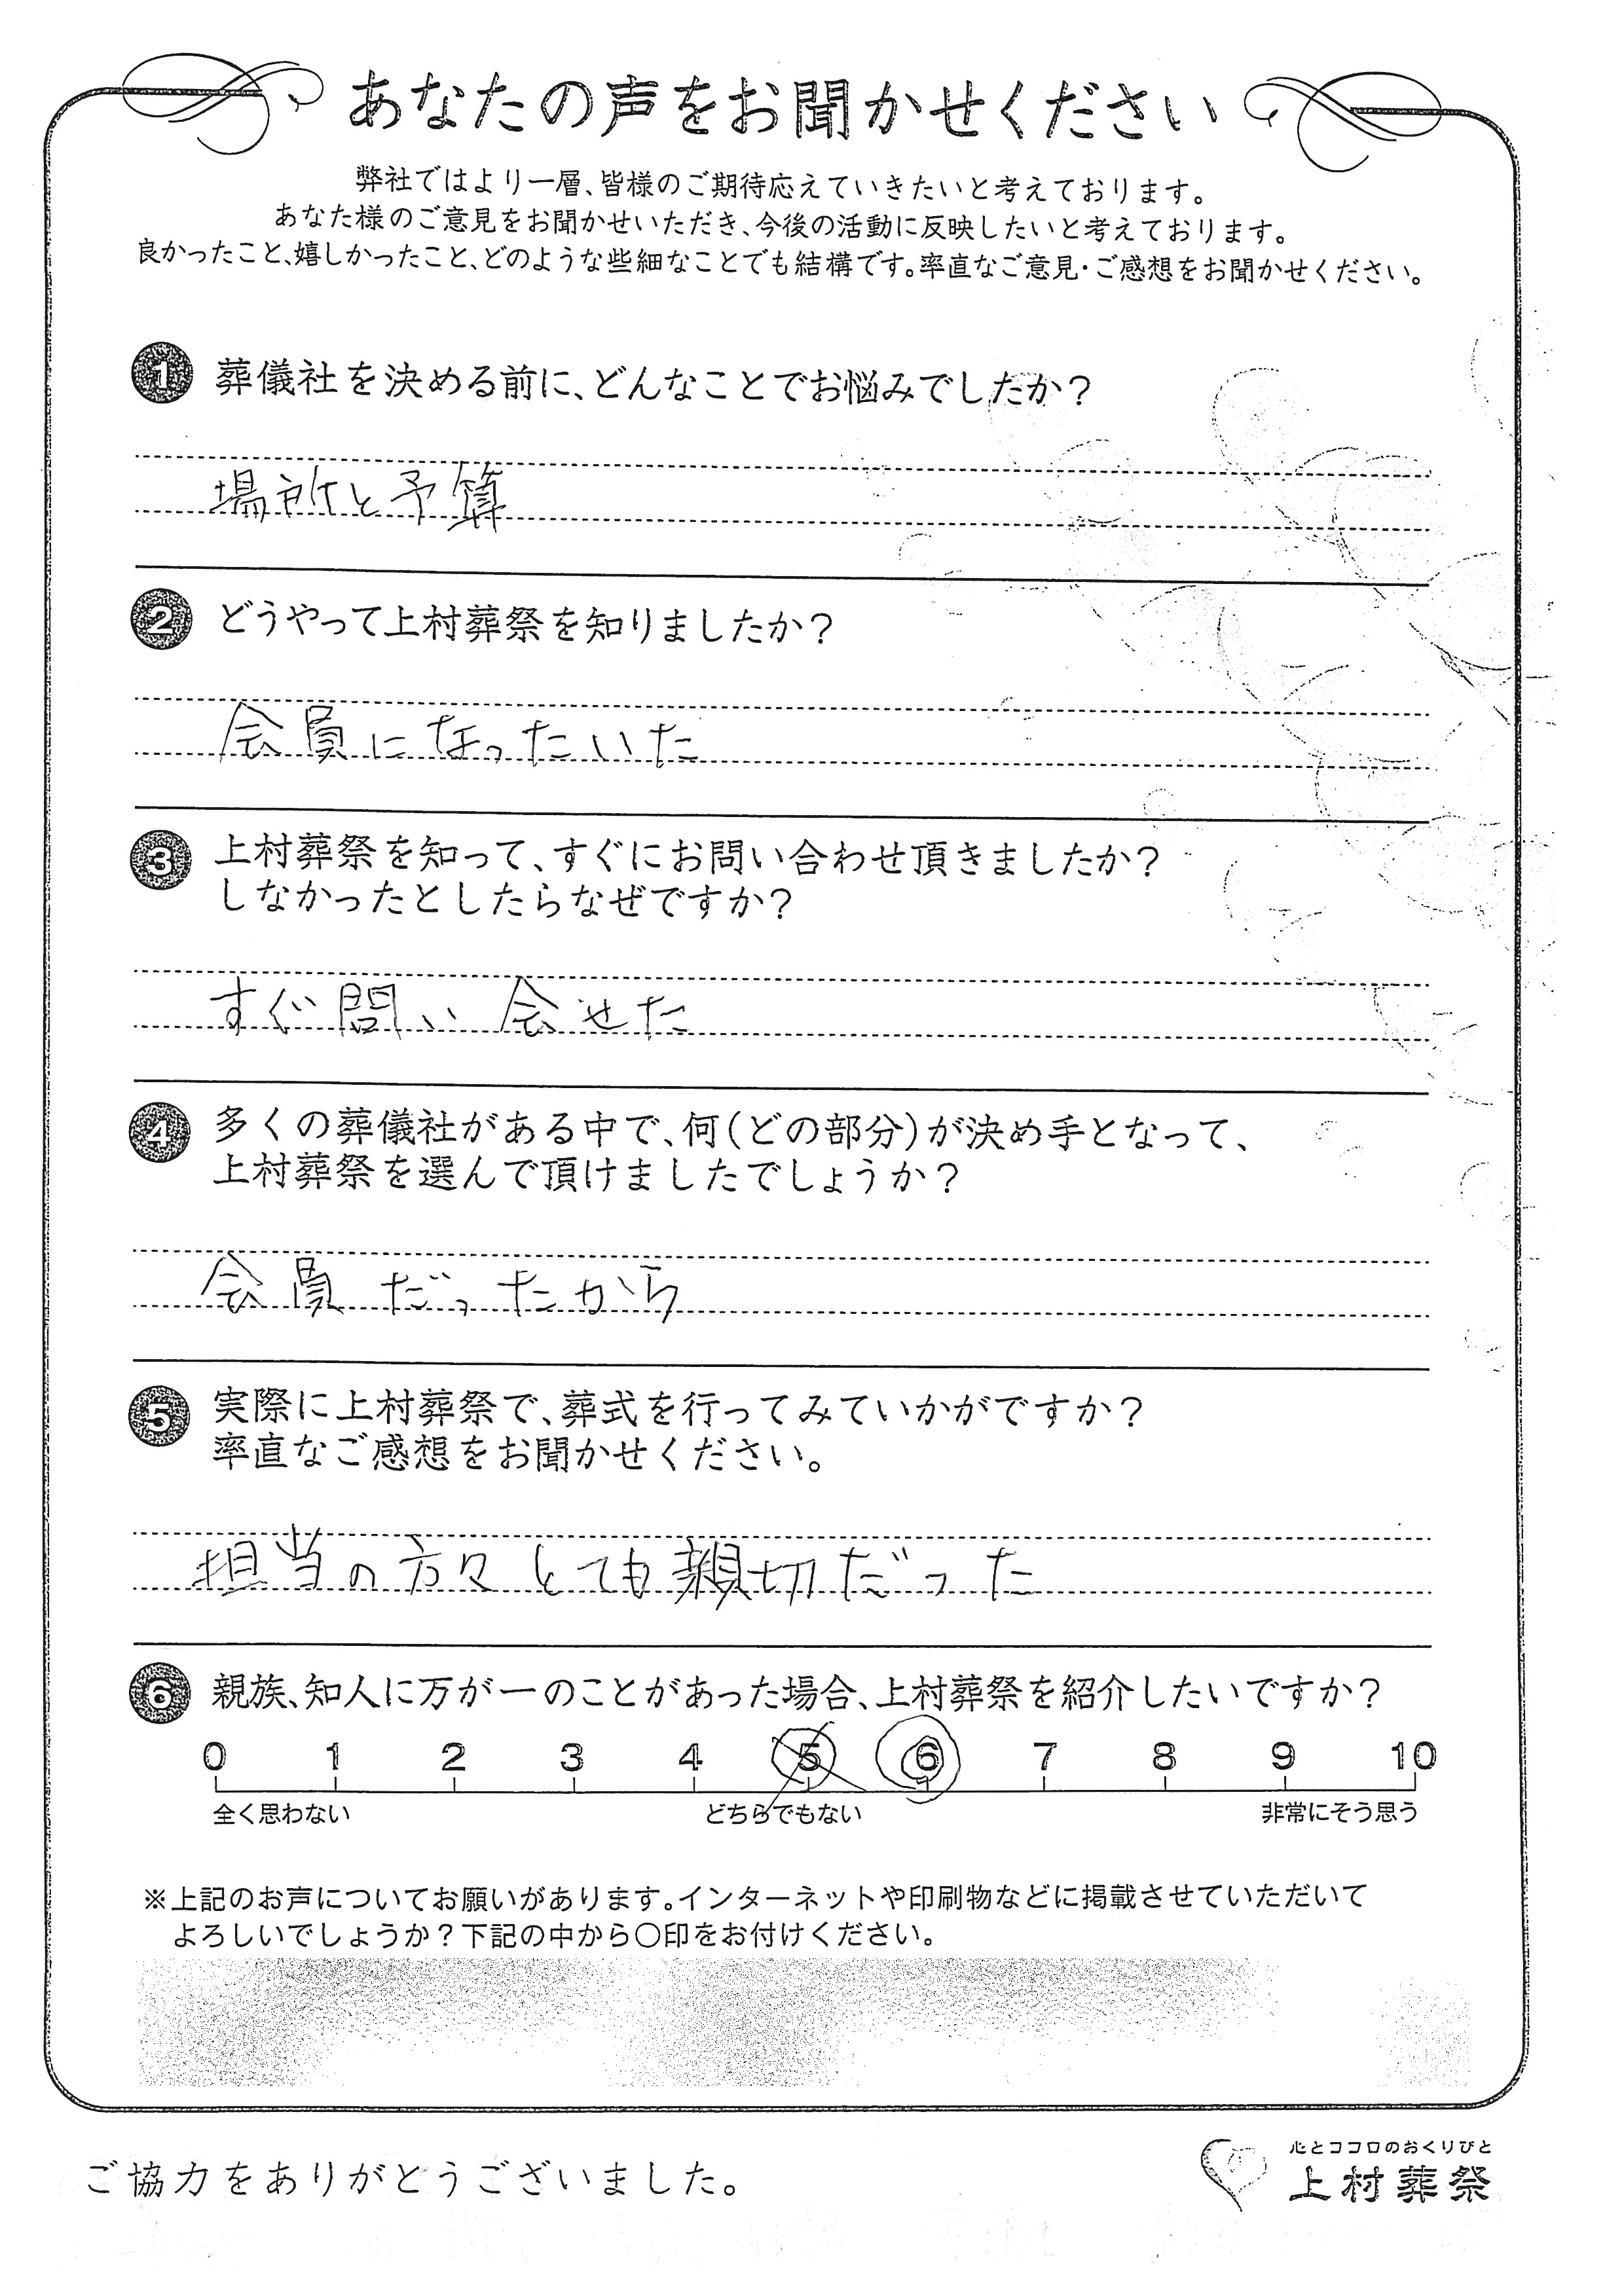 あなたの声をお聞かせください
弊社ではより一層、皆様のご期待応えていきたいと考えております。
あなた様のご意見をお聞かせいただき、今後の活動に反映したいと考えております。
良かったこと、嬉しかったこと、どのような些細なことでも結構です。率直なご意見・ご感想をお聞かせください。
1 葬儀社を決める前に、どんなことでお悩みでしたか?
場所と予算
2 どうやって上村葬祭を知りましたか?
会員になったいた
3 上村葬祭を知って、すぐにお問い合わせ頂きましたか?
しなかったとしたらなぜですか?
すぐ問い会せた
4 多くの葬儀社がある中で、何(どの部分)が決め手となって、
上村葬祭を選んで頂けましたでしょうか?
会員だったから
5 実際に上村葬祭で、葬式を行ってみていかがですか?
率直なご感想をお聞かせください。
担当の方々とても親切だった
6 親族、知人に万が一のことがあった場合、上村葬祭を紹介したいですか?
0 1 2 3 4 5 6 7 8 9 10
全く思わない どちらでもない 非常にそう思う
※上記のお声についてお願いがあります。インターネットや印刷物などに掲載させていただいて
よろしいでしょうか?下記の中から〇印をお付けください。
ご協力をありがとうございました。
心とココロのおくりびと
上村葬祭